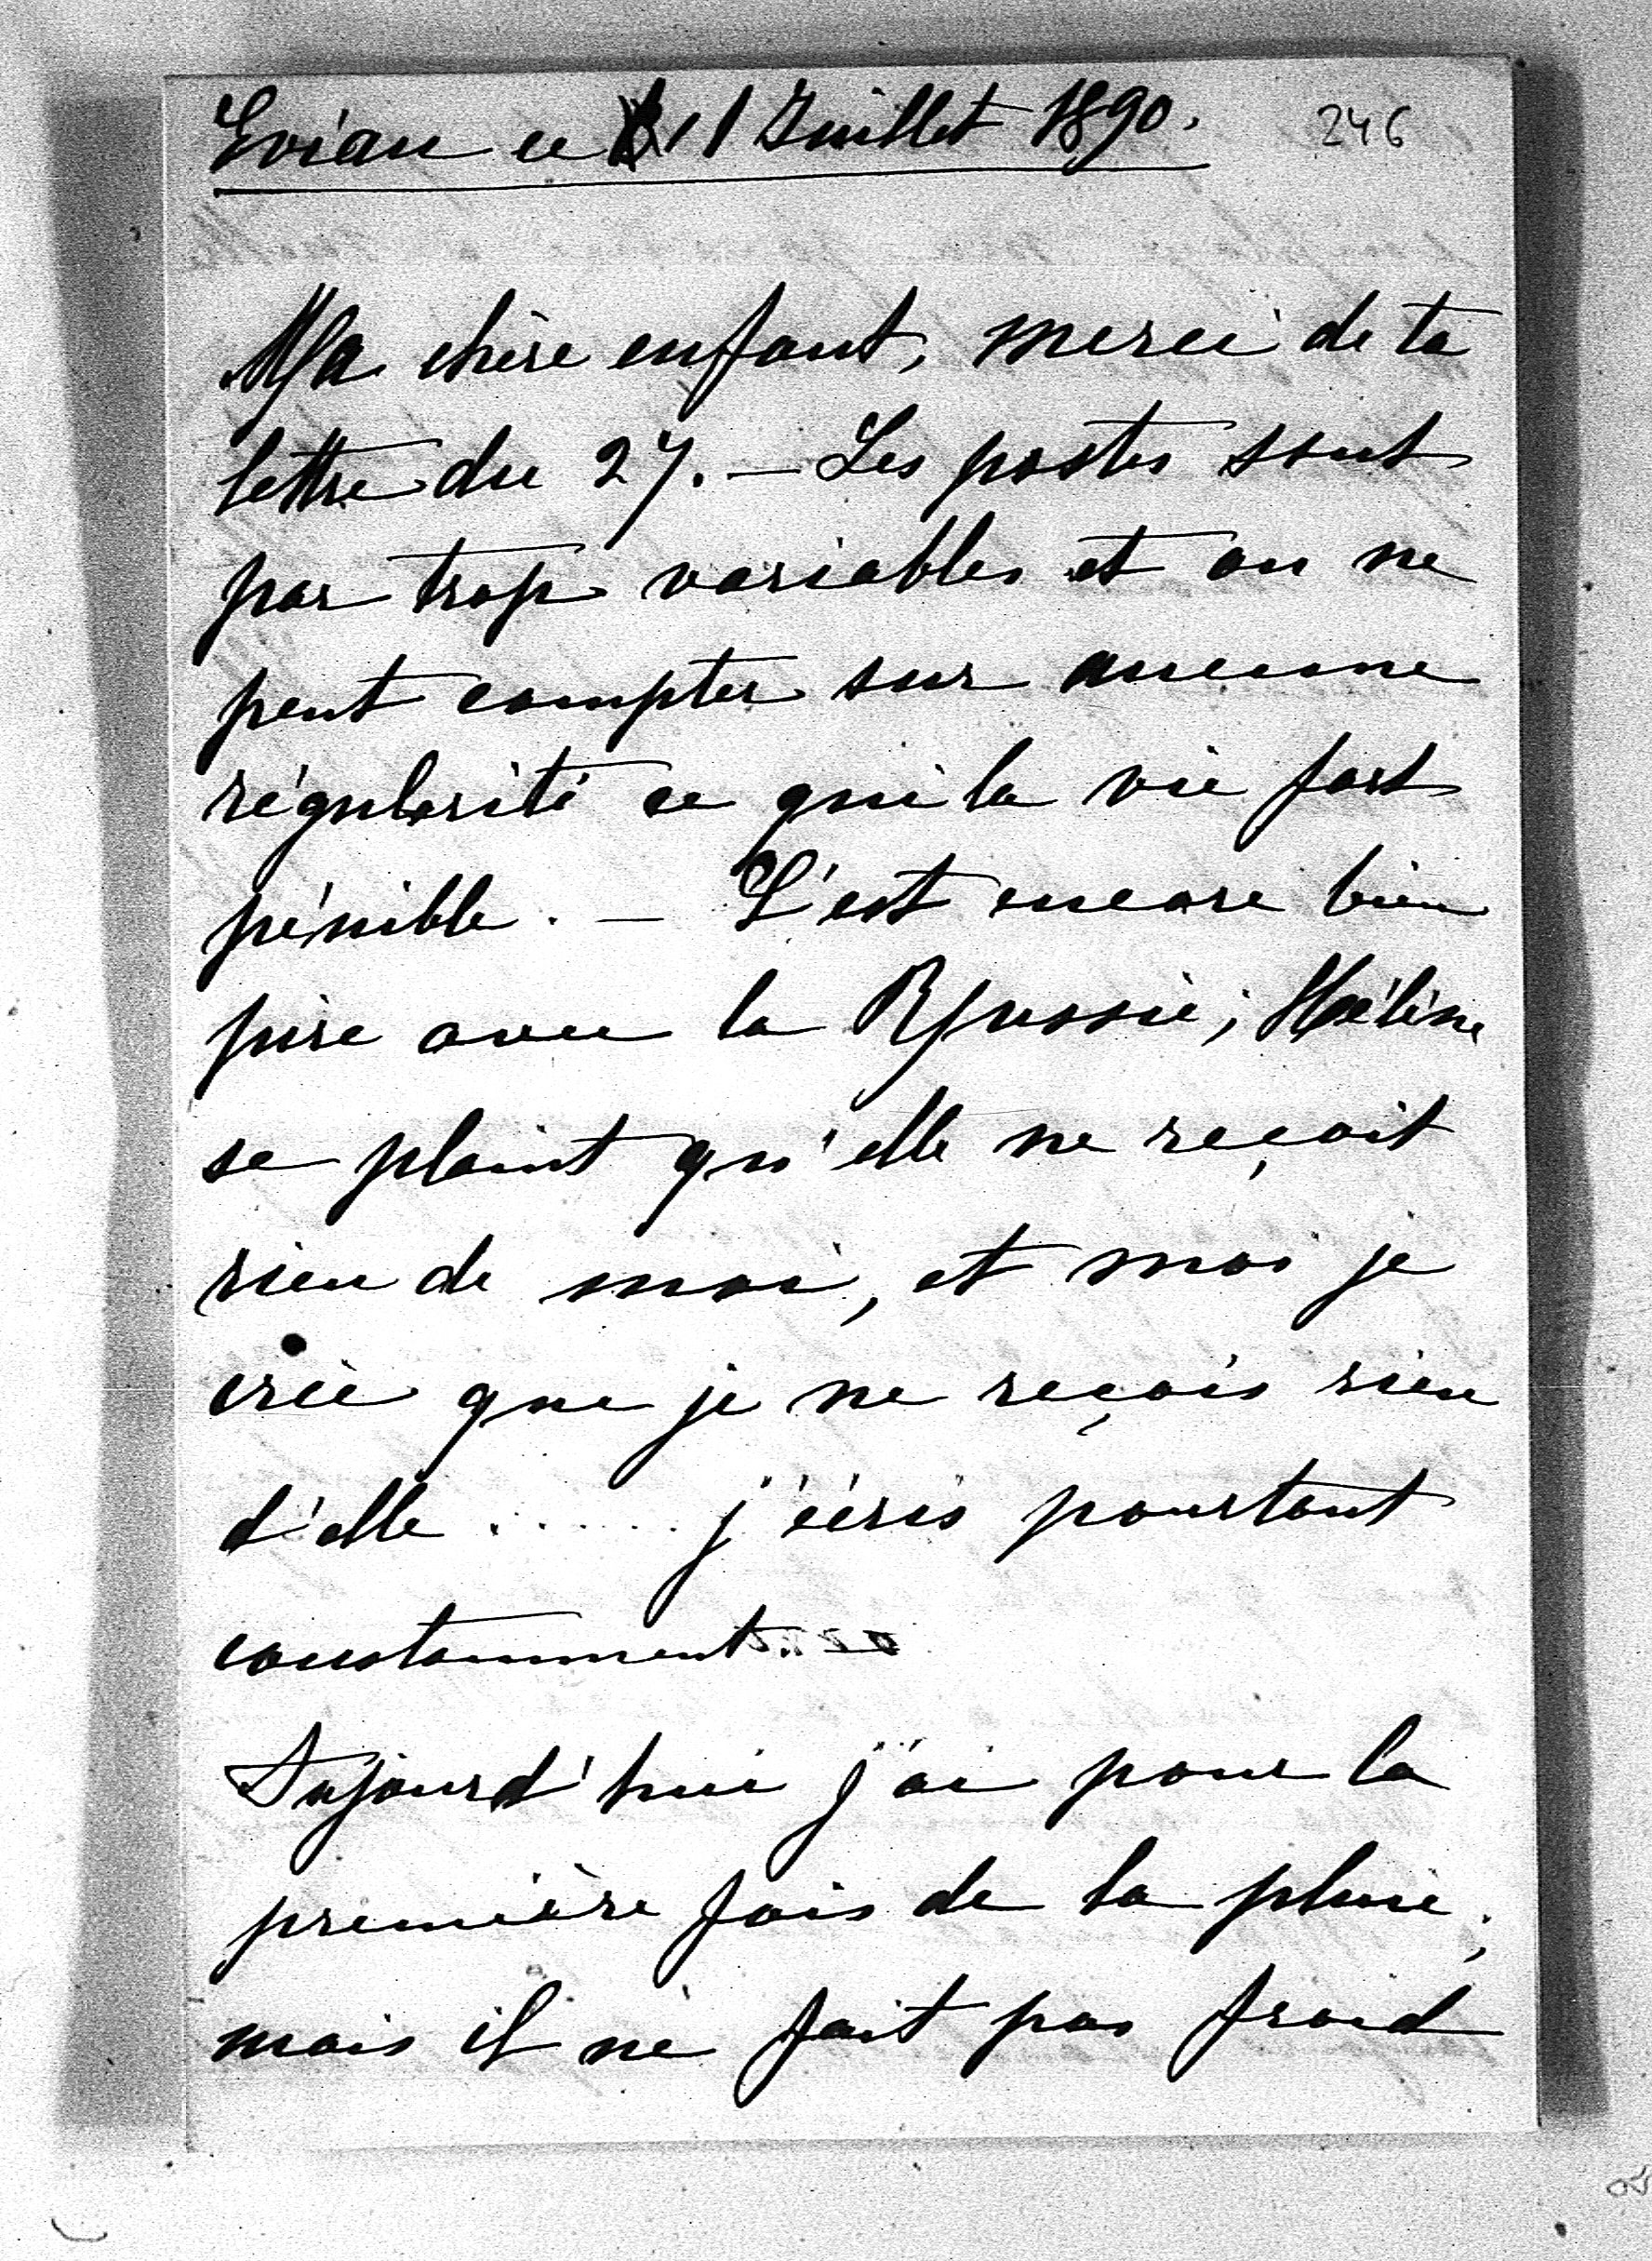 Evian ce 11 Juillet 1890. 246
Ma chère enfant, merci de ta
lettre du 27. — Les postes sont
par trop variables et on ne
peut compter sur aucune
régularité ce qui la vie fort
pénible. — C'est encore bien
pire avec la Russie; Hélène
se plaint qu'elle ne reçoit
rien de moi, et moi je
crie que je ne reçois rien
d'elle ...... j'écris pourtant
constamment.
Aujourd'hui j'ai pour la
première fois de la pluie,
mais il ne fait pas froid